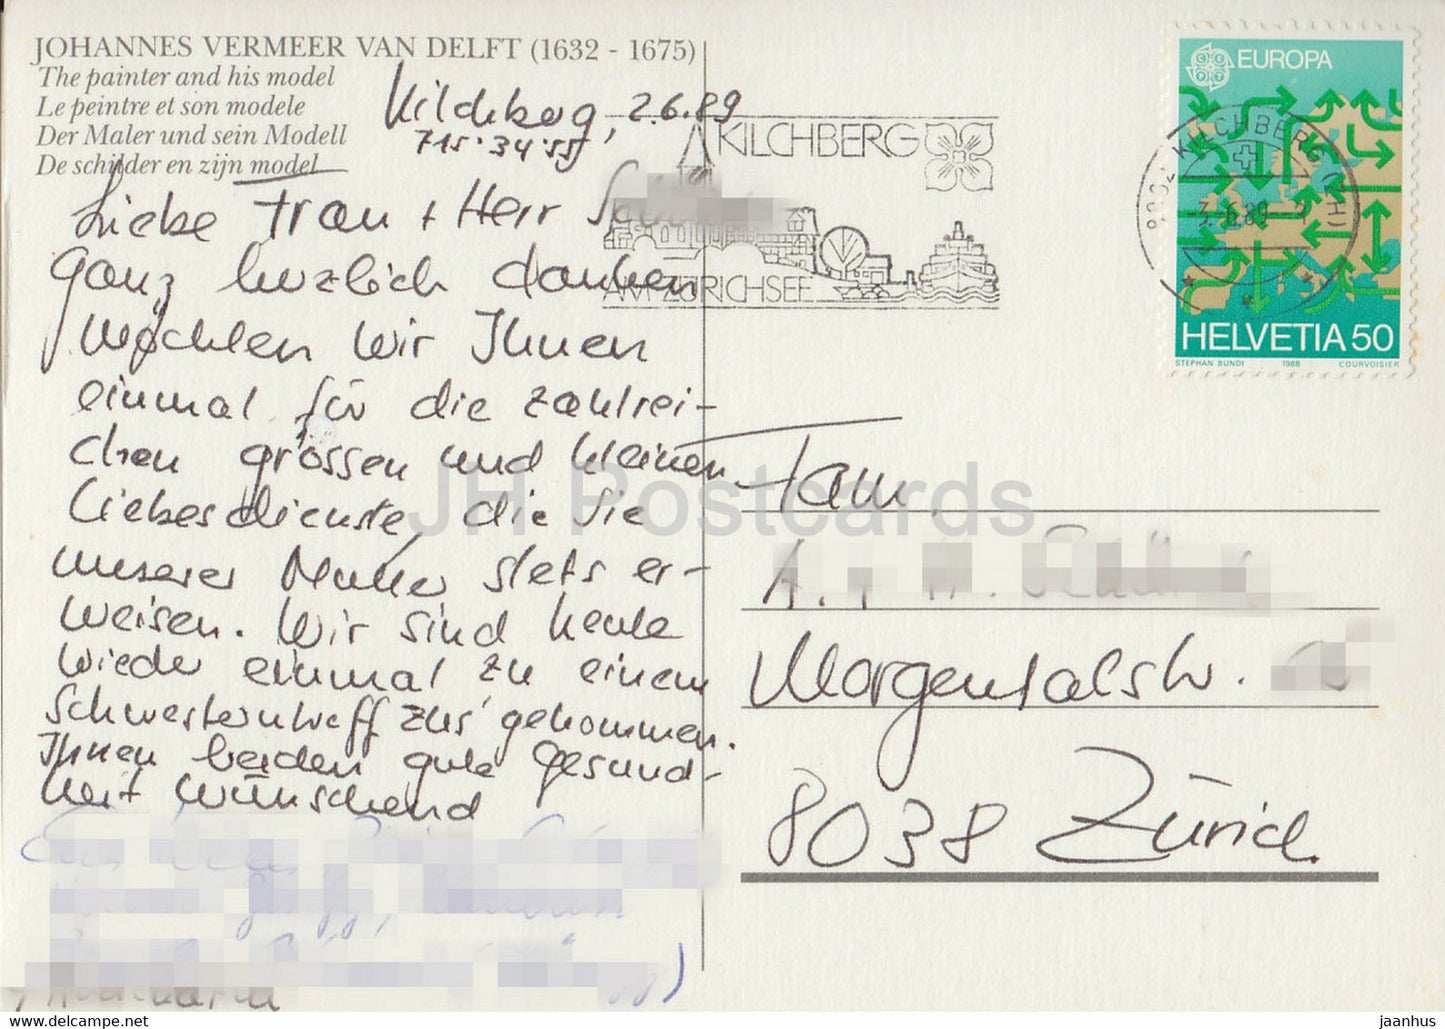 JOHANNES VERMEER VAN DELFT (1632 - 1675)
The painter and his model
Le peintre et son modele
Der Maler und sein Modell
De schilder en zijn model
Kilchberg, 2.6.89
715 34 55
Liebe Frau + Herr
Ganz herzlich danken
möchten wir Ihnen
einmal für die zahlrei-
chen grossen und kleinen
Liebesdienste, die Sie
unserer Mutter stets er-
weisen. Wir sind heute
wieder einmal zu einem
Schwesterntreff zus' gekommen.
Ihnen beiden gute Gesund-
heit wünschend
KILCHBERG
AM ZÜRICHSEE
EUROPA
8802 KILCHBERG (ZH)
HELVETIA 50
STEPHAN BUNDI 1988 COURVOISIER
Fam.
Morgentalstr.
8038 Zürich.
JH Postcards
https://www.delcampe.net
jaanhus